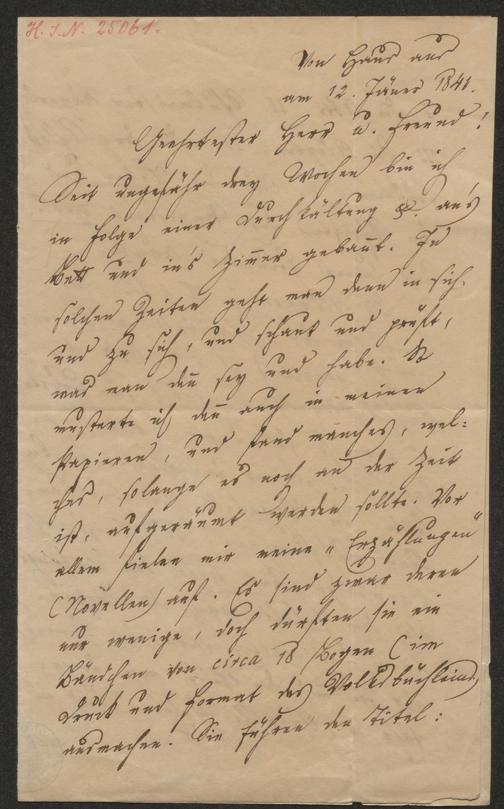 H. I. N. 25061.
Von Haus aus
am 12. Jäner 1841.
Geehrtester Herr u. Freund!
Seit ungefähr drey Wochen bin ich
in Folge einer Durchkältung &. an's
Bett und in's Zim̅er geban̅t. In
solchen Zeiten geht man denn in sich,
und zu sich, und schaut und prüft,
was man den̅ sey und habe. So
musterte ich den̅ auch in meinen
Papieren, und fand manches, wel-
ches, solange es noch an der Zeit
ist, aufgeräumt werden sollte. Vor
allem fielen mir meine „Erzählungen"
(Novellen) auf. Es sind zwar deren
nur wenige, doch dürften sie ein
Bändchen von circa 18 Bogen (im
Druck und Format des Volksbüchleins)
ausmachen. Sie führen den Titel: